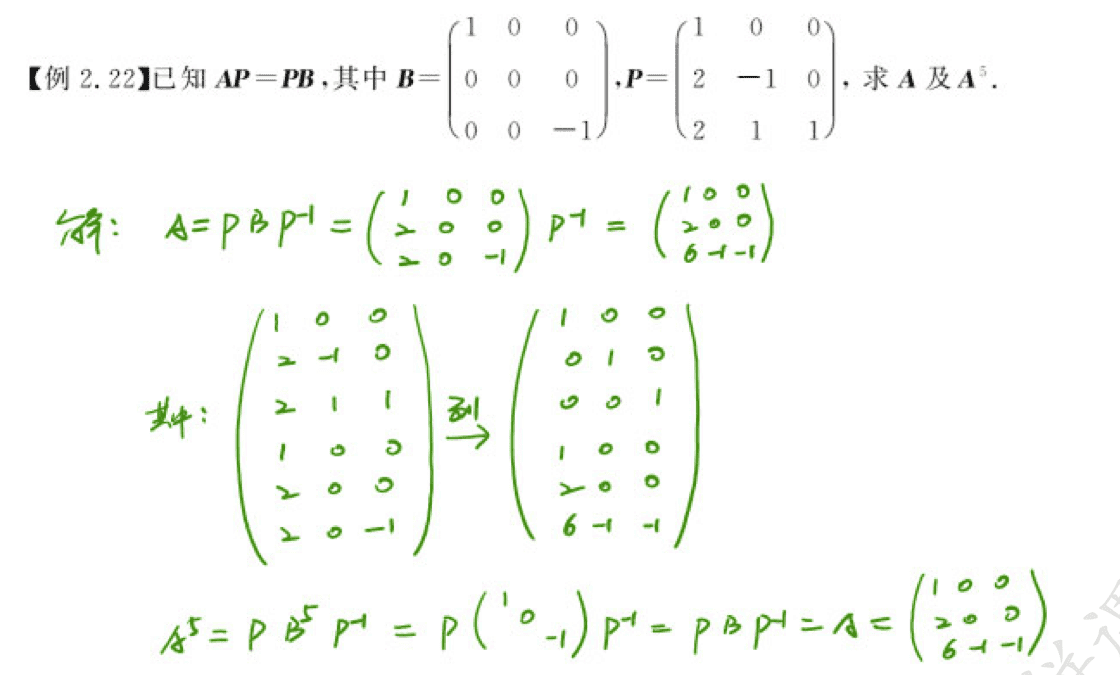 【例 2.22】已知 AP=PB,其中 B=(1 0 0; 0 0 0; 0 0 -1),P=(1 0 0; 2 -1 0; 2 1 1), 求 A 及 A⁵.
解: A=PBP⁻¹=(1 0 0; 2 0 0; 2 0 -1)P⁻¹=(1 0 0; 2 0 0; 6 -1 -1)
其中: (1 0 0; 2 -1 0; 2 1 1; 1 0 0; 2 0 0; 2 0 -1) 列→ (1 0 0; 0 1 0; 0 0 1; 1 0 0; 2 0 0; 6 -1 -1)
A⁵=PB⁵P⁻¹=P(1 0 -1)P⁻¹=PBP⁻¹=A=(1 0 0; 2 0 0; 6 -1 -1)